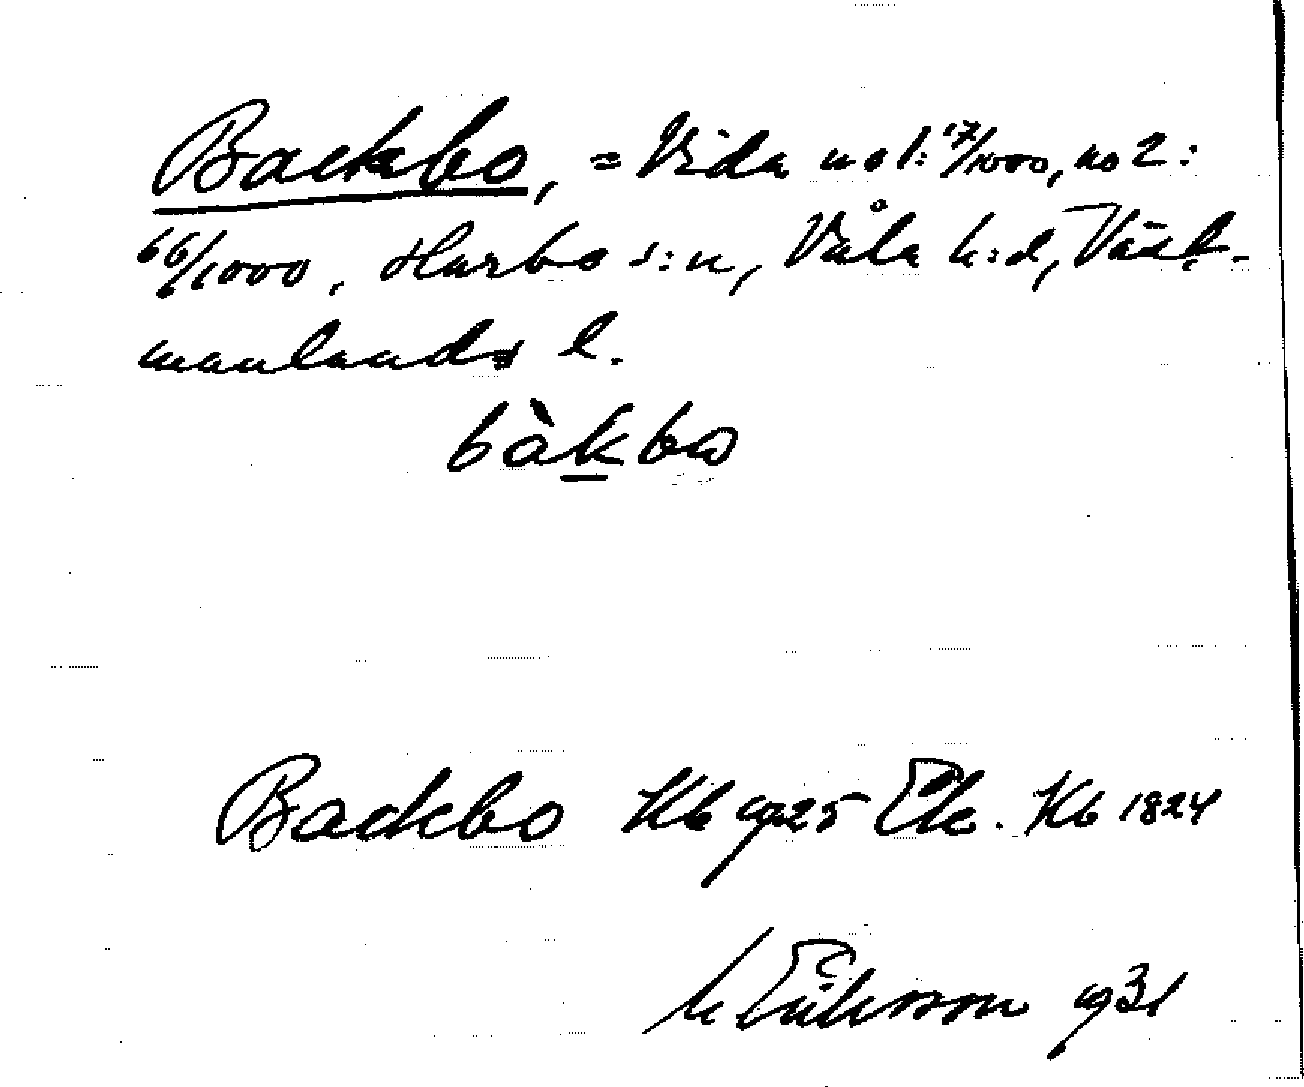 Backbo, = Vida no 1: 17/1000, no 2:
66/1000, Harbo s:n, Våla h:d, Väst-
manlands l.
bàkbo
Backbo Kb 1925 Ek. Kb 1824
M Eriksson 1931